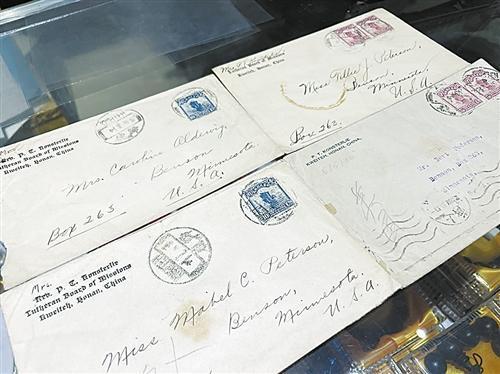 Mrs.
Rev. P. T. Konsterlie
Lutheran Board of Missions
Kweiteh, Honan, China
Mrs. Caroline
Benson,
Minnesota
U.S.A.
Box 263.
Lutheran Board of Missions
Kweiteh, Honan, China
Miss Tillie Peterson,
Benson,
Minnesota
U.S.A.
Box 262.
P. T. KONSTERLIE
KWEITEH, HONAN, CHINA.
Peterson,
Benson,
U.S.A.
Mrs.
Rev. P. T. Konsterlie
Lutheran Board of Missions
Kweiteh, Honan, China
Miss Mabel C. Peterson,
Benson,
Minnesota.
U.S.A.